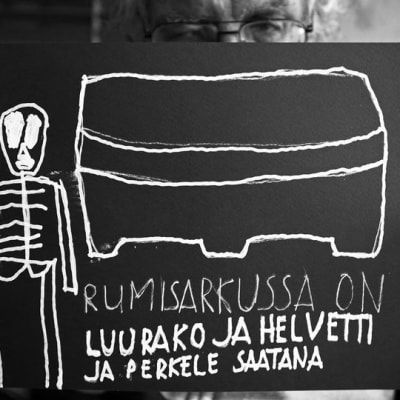 RUMISARKUSSA ON
LUURAKO JA HELVETTI
JA PERKELE SAATANA